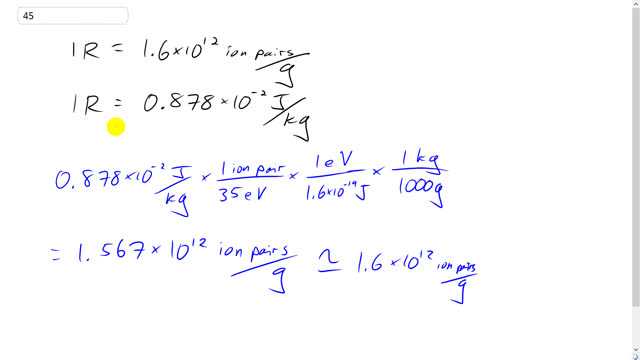 45
1R = 1.6×10¹² ion pairs/g
1R = 0.878×10⁻² J/kg
0.878×10⁻² J/kg × 1 ion pair/35 eV × 1 eV/1.6×10⁻¹⁹ J × 1 kg/1000g
= 1.567×10¹² ion pairs/g ≃ 1.6×10¹² ion pairs/g